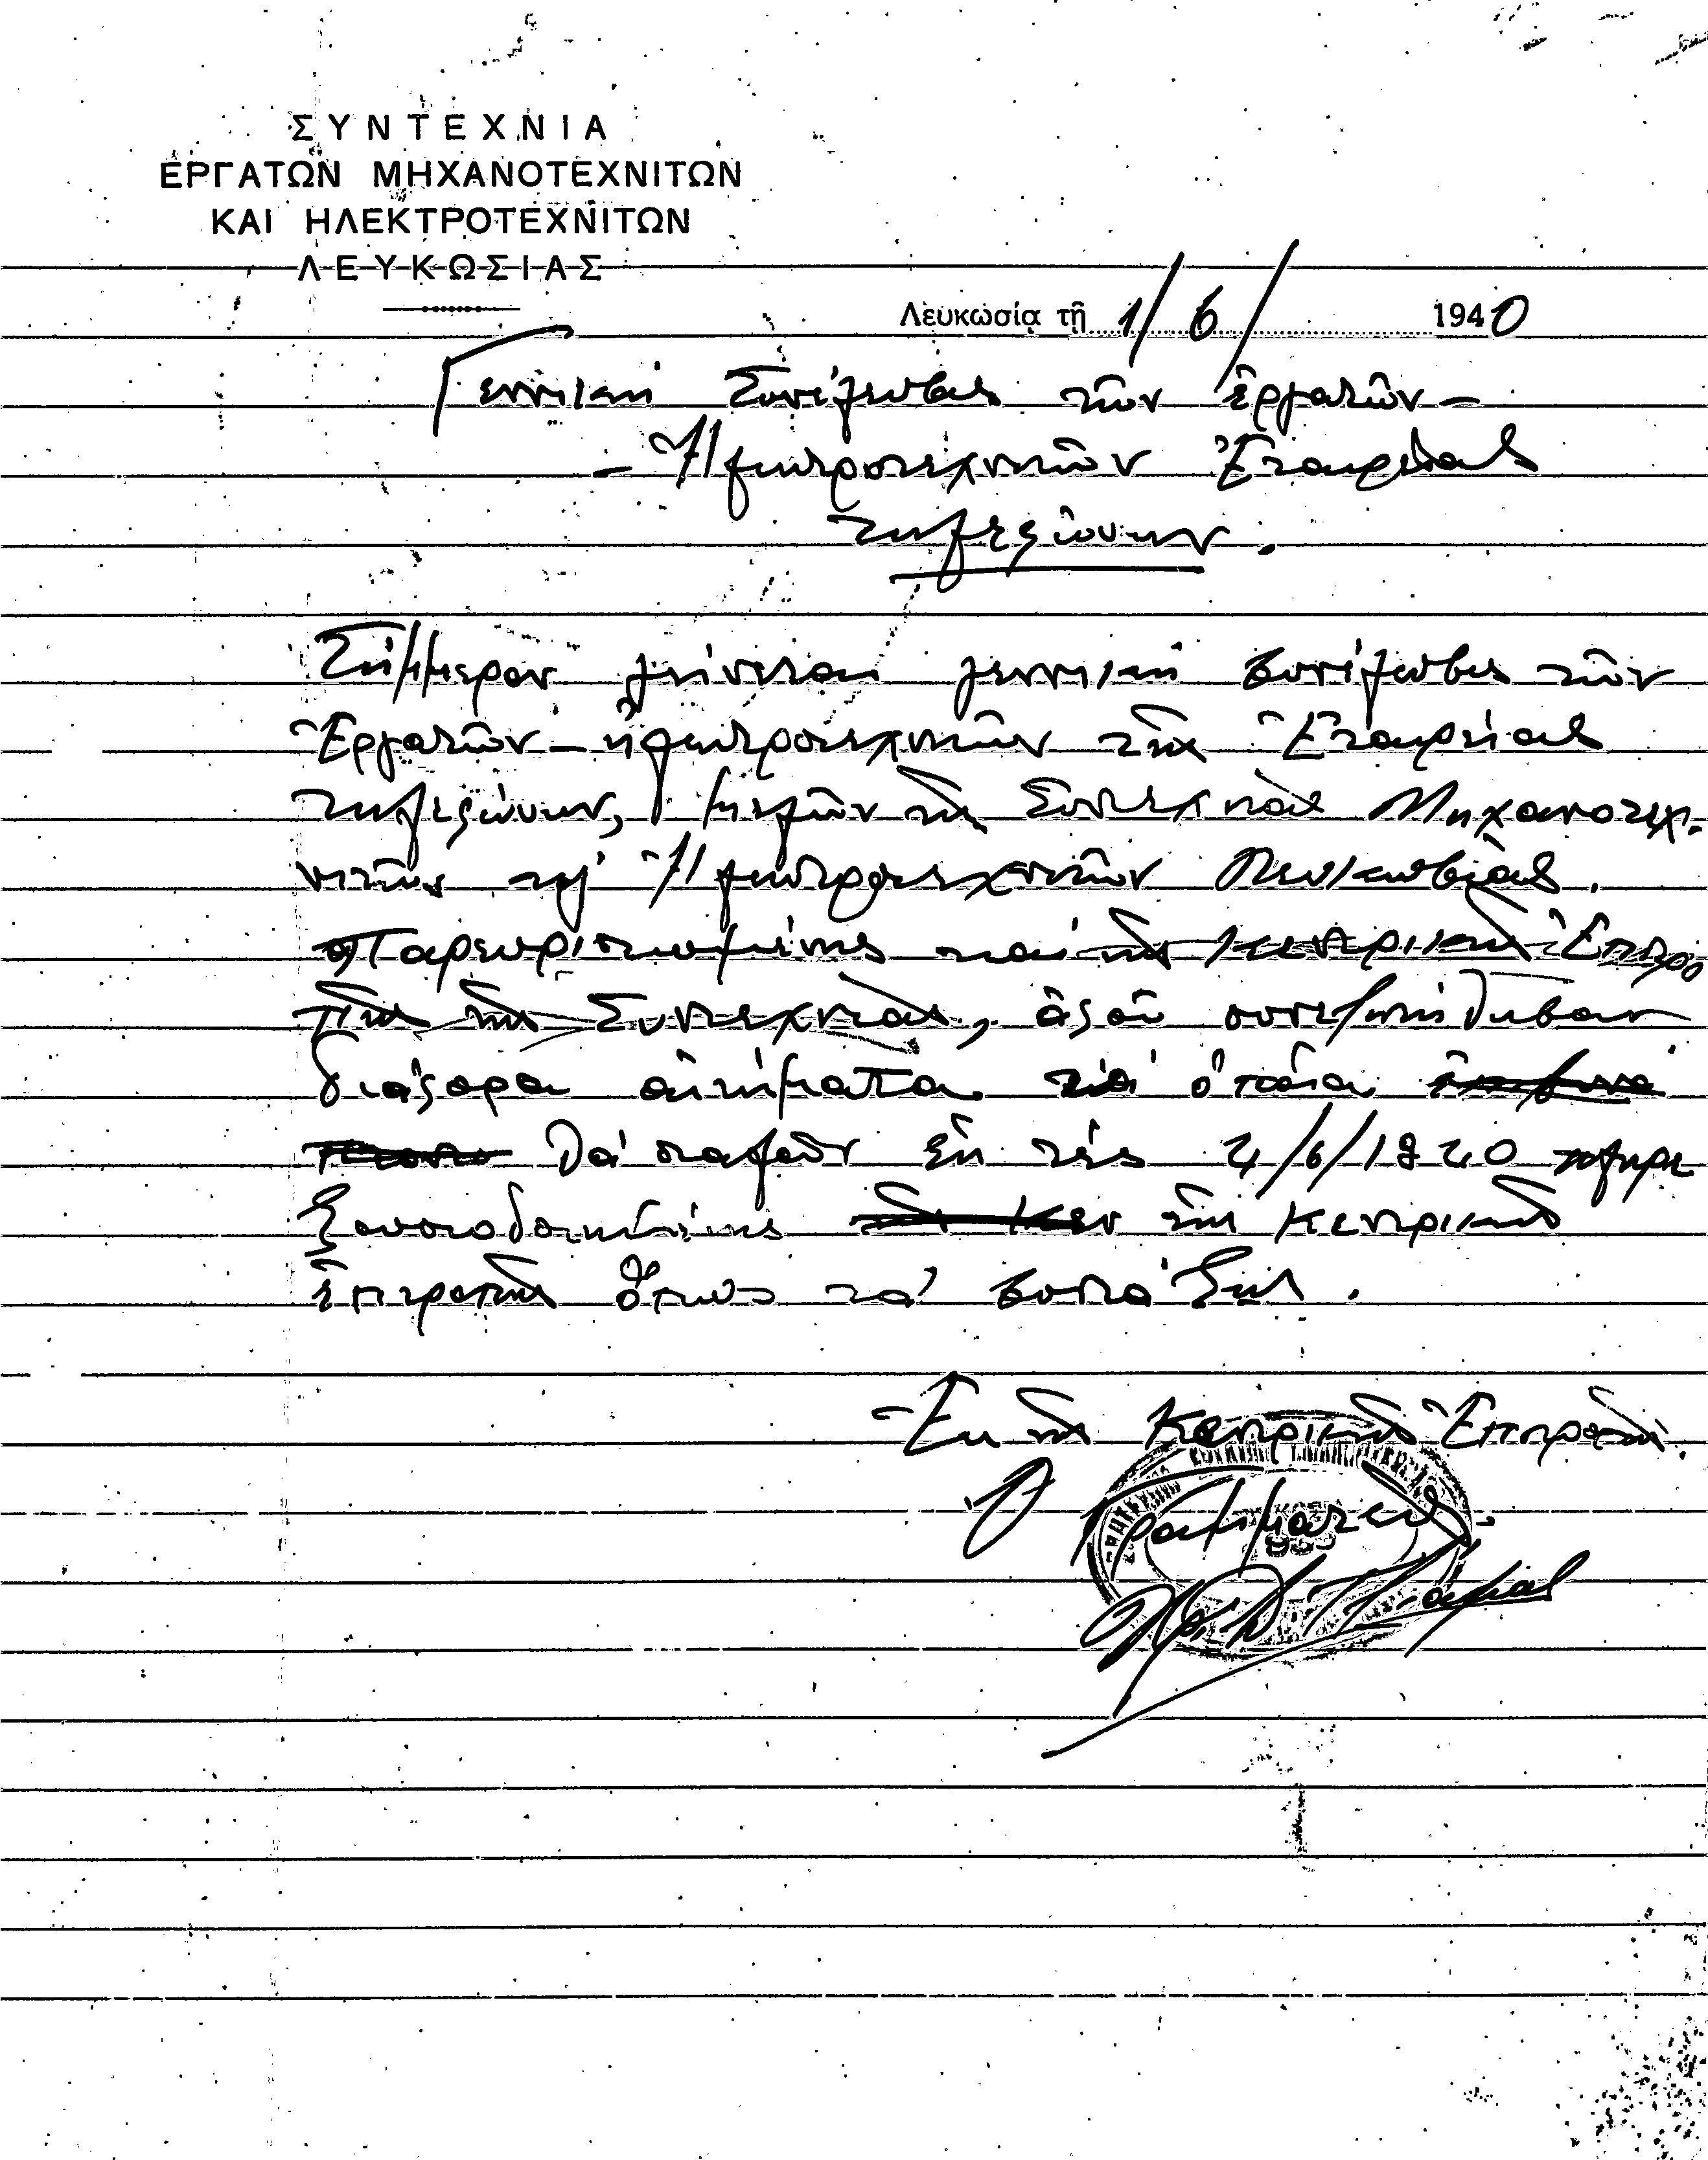 ΣΥΝΤΕΧΝΙΑ
ΕΡΓΑΤΩΝ ΜΗΧΑΝΟΤΕΧΝΙΤΩΝ
ΚΑΙ ΗΛΕΚΤΡΟΤΕΧΝΙΤΩΝ
ΛΕΥΚΩΣΙΑΣ
Λευκωσία τῇ 1/6/ 1940
Γεννική Συνέλευσις τῶν ἐργατῶν -
- Ἠλεκτροτεχνιτῶν Ἑταιρείας
τηλεφώνων.
Σήμμερον γείνεται γεννική συνέλευσις τῶν
Ἐργατῶν - ἠλεκτροτεχνιτῶν τῆς Ἑταιρείας
τηλεφώνων, μελῶν τῆς Συντεχνίας Μηχανοτεχ-
νιτῶν καὶ Ἠλεκτροτεχνιτῶν Λευκωσίας.
Παρευρισκομένης καί τῆς Κεντρικῆς Ἐπιτρο
πῆς τῆς Συντεχνίας, ἀφοῦ συνεζητήθησαν
διάφορα αἰτήματα τά ὁποῖα
θά σταλοῦν ἐν τές 4/6/1940 πληρε
ξουσιοδοτημένης τῆς Κεντρικῆς
ἐπιτροπῆς ὅπως τά συντάξῃ.
Ἐκ τῆς Κεντρικῆς Ἐπιτροπῆς.
Ὁ Γραμματεύς